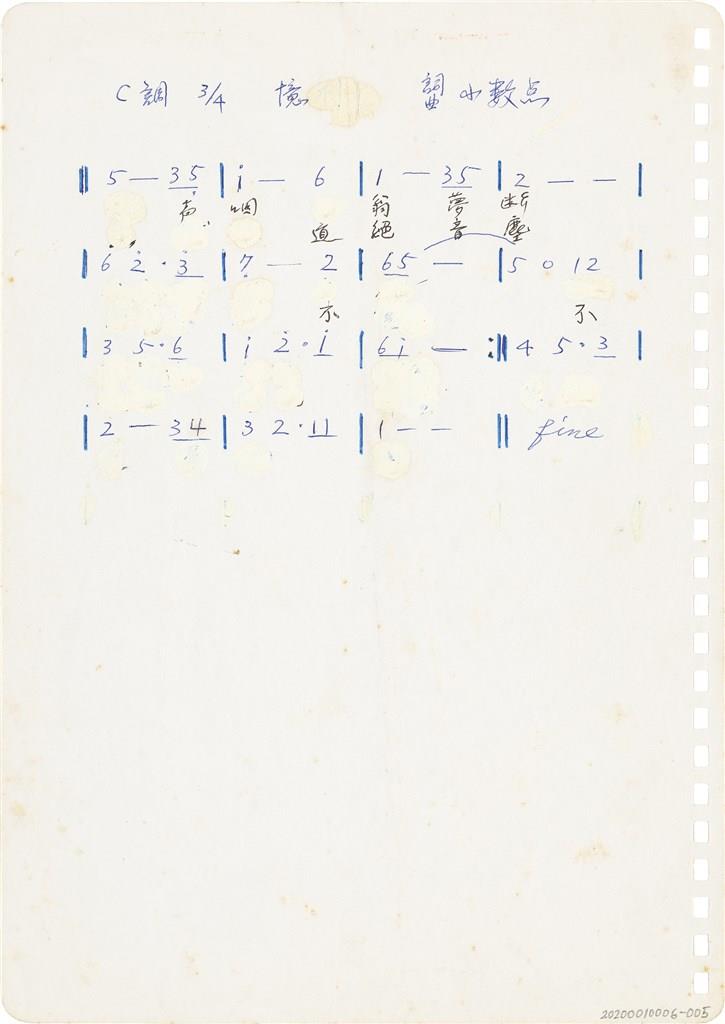 C調 3/4 憶 詞曲 小数点
‖ 5 — 3 5 | i — 6 | 1 — 3 5 | 2 — — |
声 烟 翁 夢 断
道 絕 音 塵
| 6 2 · 3 | 7 — 2 | 6 5 — | 5 0 1 2 |
不 不
| 3 5 · 6 | i 2 · i | 6 i — :‖ 4 5 · 3 |
| 2 — 3 4 | 3 2 · 1 1 | 1 — — ‖ fine
20200010006-005